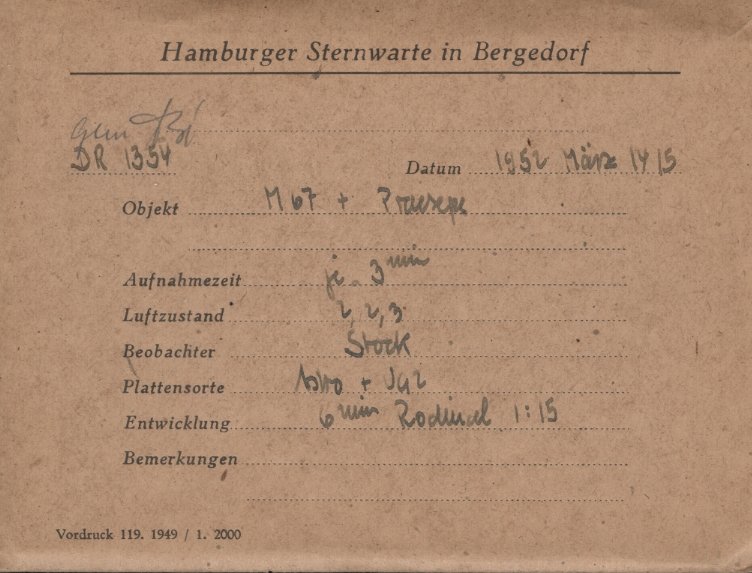 Hamburger Sternwarte in Bergedorf
DR 1354
Datum 1952 März 14/5
Objekt M 67 + Praesepe
Aufnahmezeit je 3 min
Luftzustand 2, 2, 3
Beobachter Stock
Plattensorte Astro +
Entwicklung 6 min Rodinal 1:15
Bemerkungen
Vordruck 119. 1949 / 1. 2000